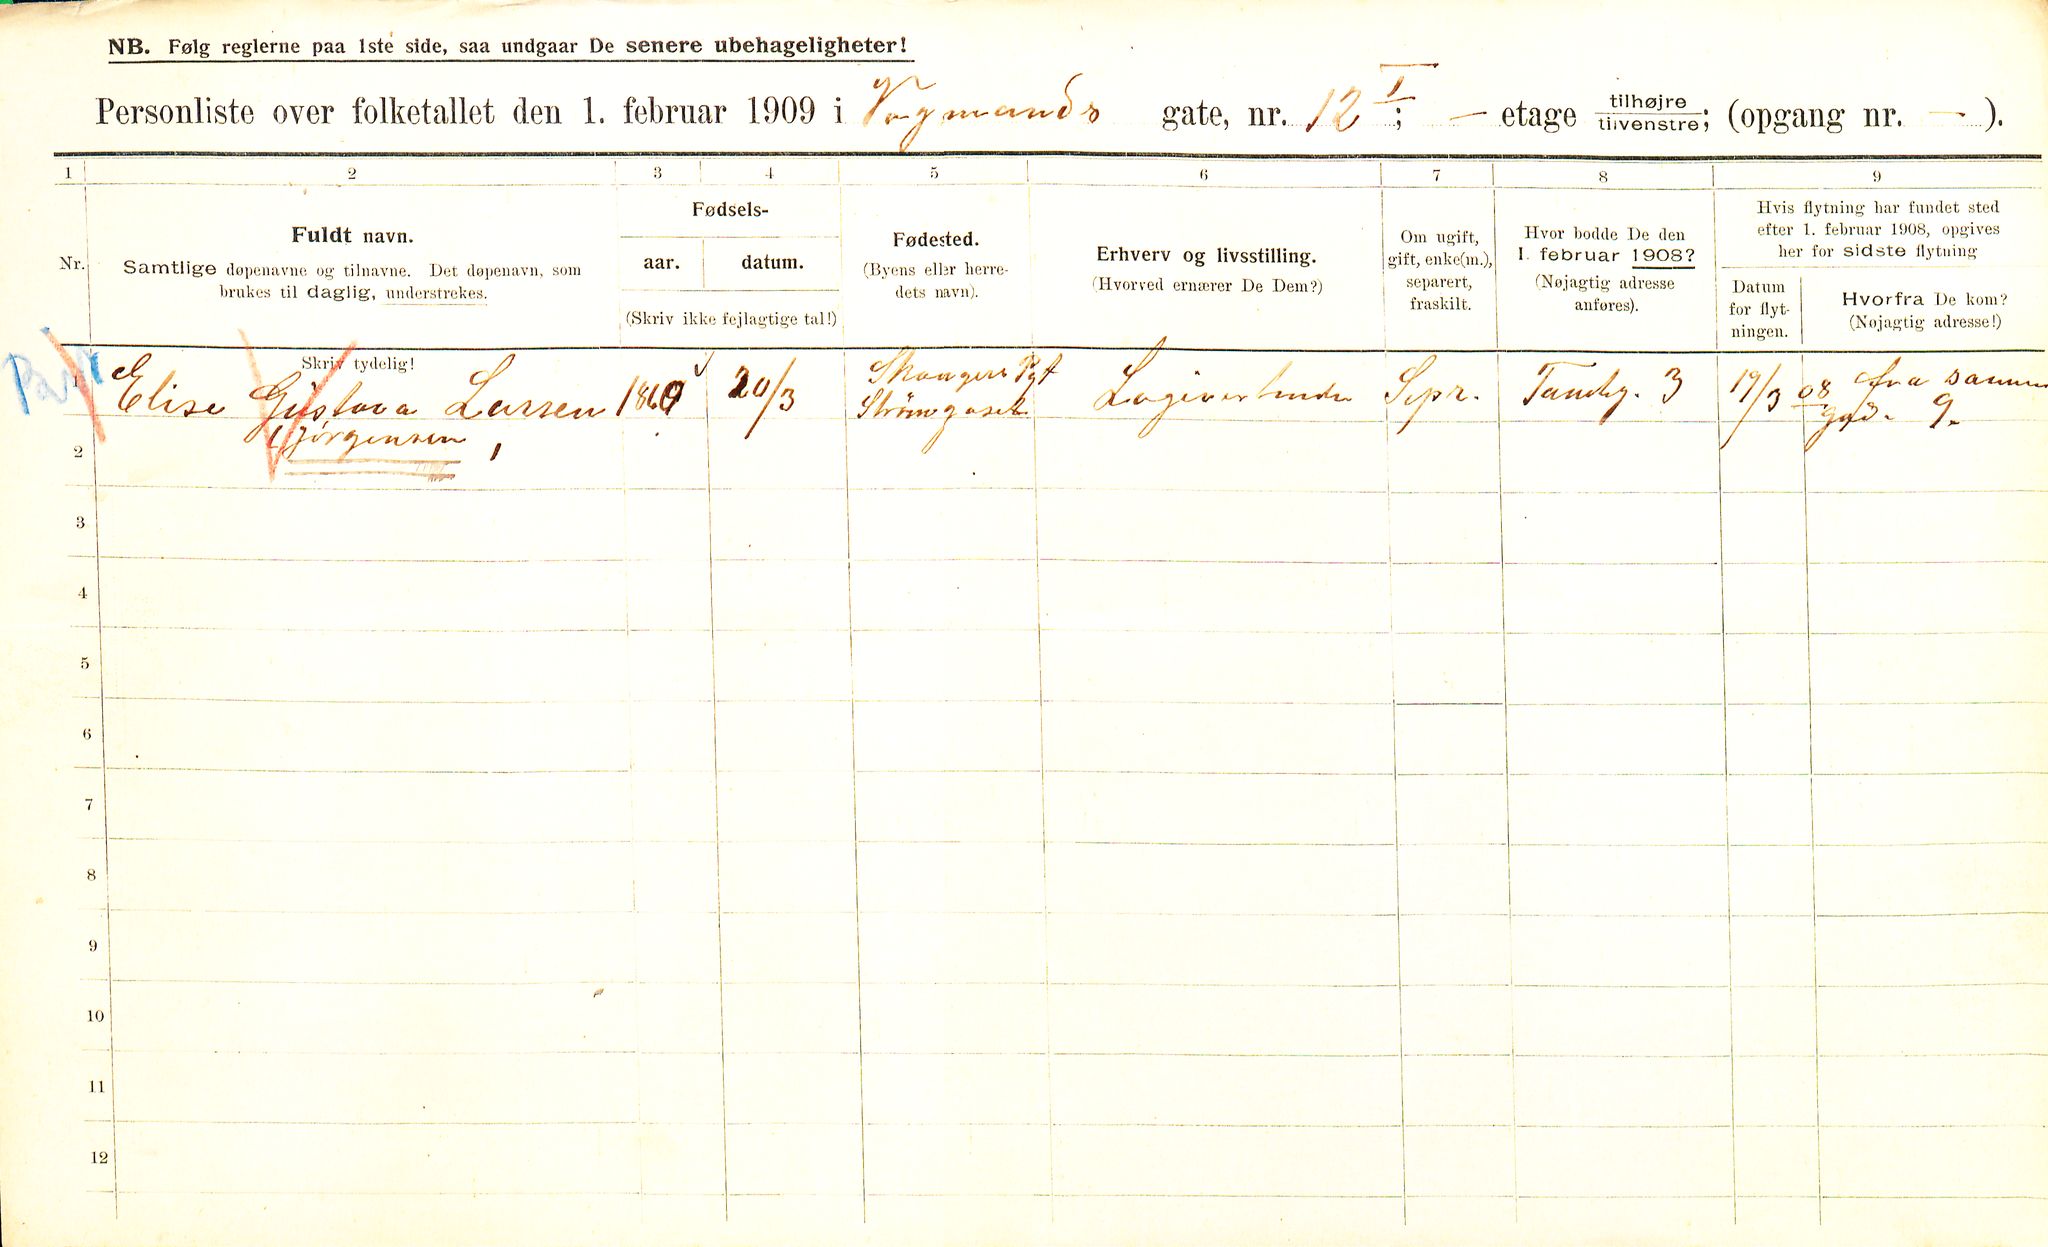 NB. Følg reglerne paa 1ste side, saa undgaar De senere ubehageligheter!
Personliste over folketallet den 1. februar 1909 i Vognmands gate, nr. 12 I; — etage tilhøjre/tilvenstre; (opgang nr. — ).
1 2 3 4 5 6 7 8 9
Nr.
Fuldt navn.
Samtlige døpenavne og tilnavne. Det døpenavn, som
brukes til daglig, understrekes.
Fødsels-
aar. datum.
(Skriv ikke fejlagtige tal!)
Fødested.
(Byens eller herre-
dets navn).
Erhverv og livsstilling.
(Hvorved ernærer De Dem?)
Om ugift,
gift, enke(m.),
separert,
fraskilt.
Hvor bodde De den
1. februar 1908?
(Nøjagtig adresse
anføres).
Hvis flytning har fundet sted
efter 1. februar 1908, opgives
her for sidste flytning
Datum
for flyt-
ningen.
Hvorfra De kom?
(Nøjagtig adresse!)
Skriv tydelig!
1 Elise Gustava Larsen 1860 20/3 Skoger Pgt Logivertinde Sepr. Tomtg. 3 19/3 08 fra samme
Strømsgodset gad. 9.
2 Jørgensen
3
4
5
6
7
8
9
10
11
12